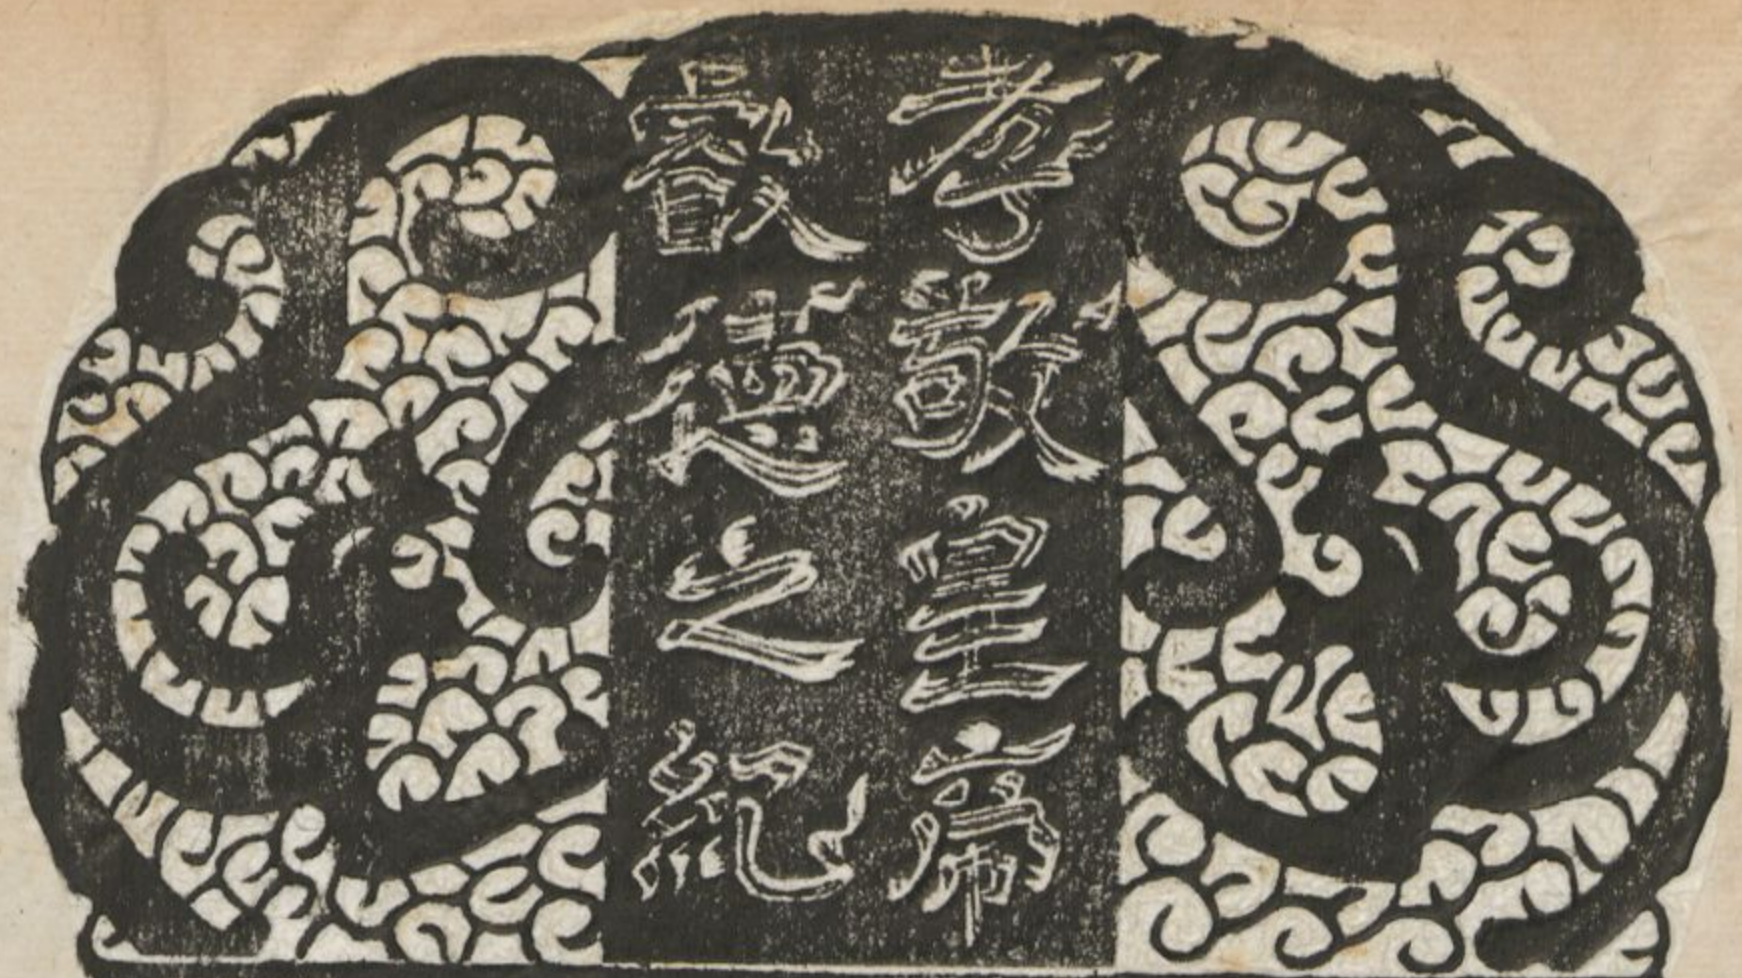 孝敬皇帝
叡德之紀